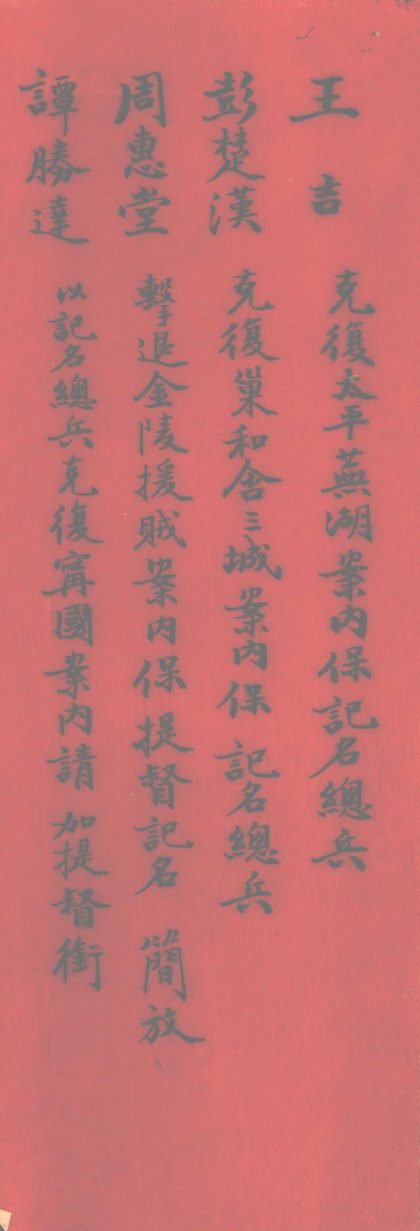 王吉 克復太平蕪湖案內保記名總兵
彭楚漢 克復巢和含三城案內保 記名總兵
周惠堂 擊退金陵援賊案內保提督記名 簡放
譚勝達 以記名總兵克復甯國案內請 加提督銜